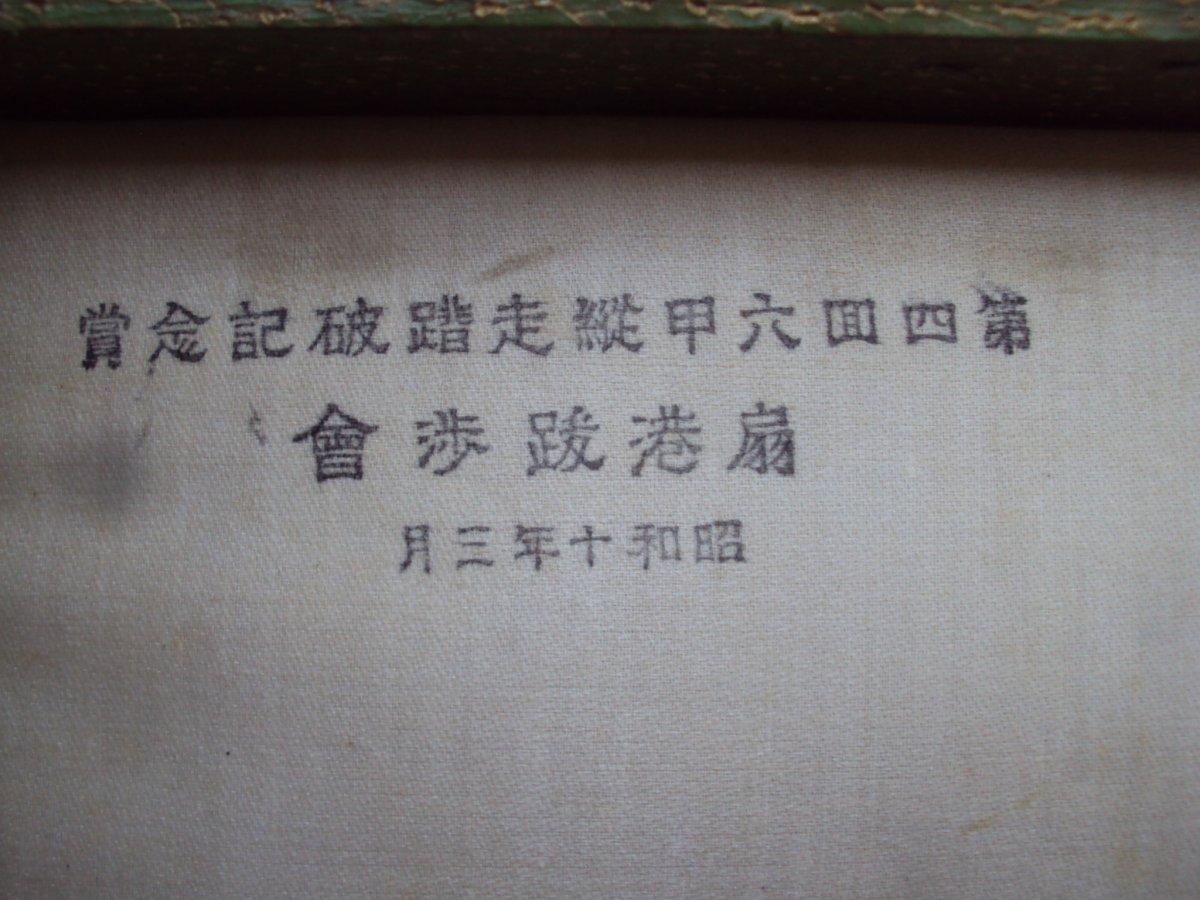 第四回六甲縱走踏破記念賞
扇港跋渉會
昭和十年三月